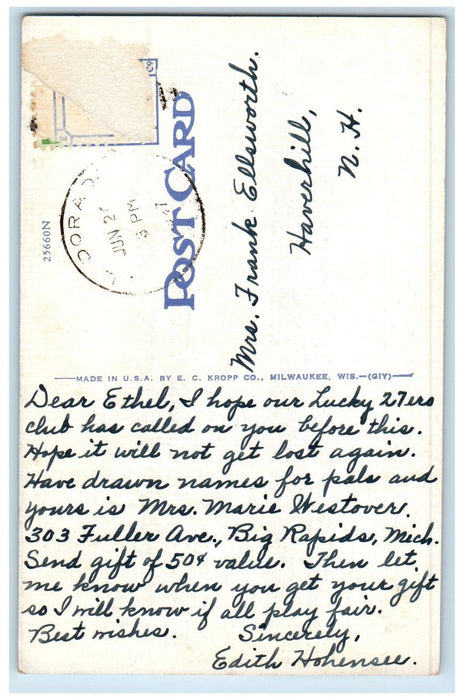 POST CARD
25660N
DORA
JUN 2
3 PM
Mrs. Frank Ellsworth.
Haverhill,
N. H.
MADE IN U.S.A. BY E. C. KROPP CO., MILWAUKEE, WIS.—(GIY)
Dear Ethel, I hope our Lucky 27ers
club has called on you before this.
Hope it will not get lost again.
Have drawn names for pals and
yours is Mrs. Marie Westover.
303 Fuller Ave., Big Rapids, Mich.
Send gift of 50¢ value. Then let
me know when you get your gift
so I will know if all play fair.
Best wishes. Sincerely,
Edith Hohensee.